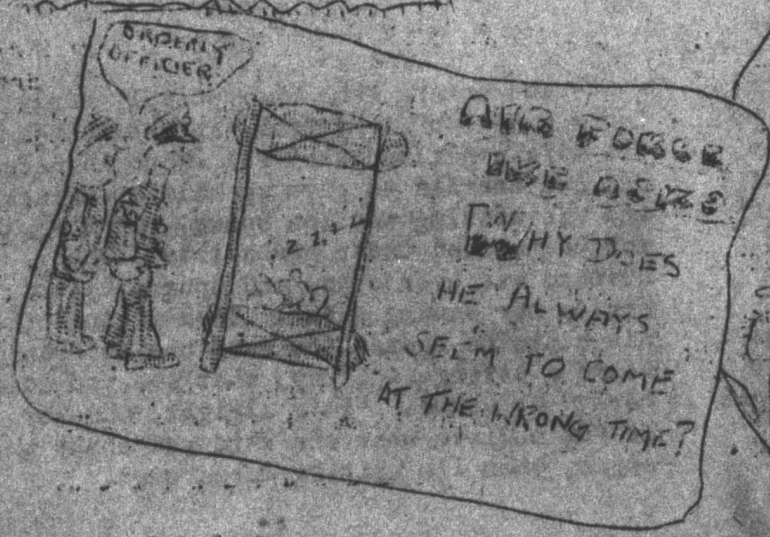 ORDERLY
OFFICER
AIR FORCE
Z Z Z Z
WHY DOES
HE ALWAYS
SEEM TO COME
AT THE WRONG TIME?